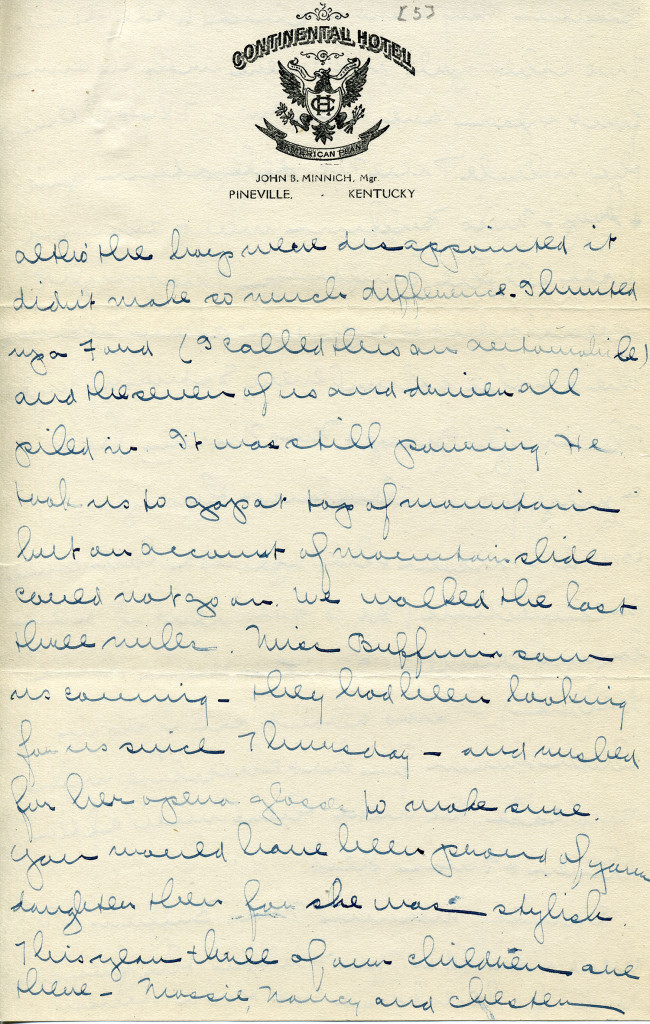 [5]
CONTINENTAL HOTEL
CH
AMERICAN PLAN
JOHN B. MINNICH, Mgr.
PINEVILLE, - KENTUCKY
altho' the boys were disappointed it
didn't make so much difference. I hunted
up a Ford (I called this an automobile)
and the seven of us and driver all
piled in. It was still pouring. He
took us to gap at top of mountain
but on account of mountain slide
could not go on. We walked the last
three miles. Miss Buffum saw
us coming - they had been looking
for us since Thursday - and rushed
for her opera glasses to make sure.
You would have been proud of your
daughter then for she was stylish.
This year three of our children are
there - Mossie, Nancy and Chester